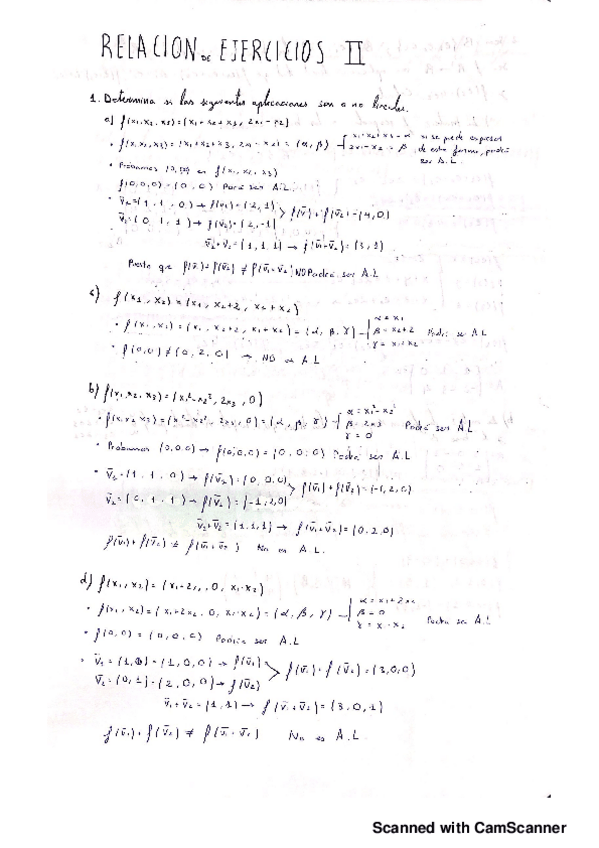 RELACION DE EJERCICIOS II
1. Determina si las siguientes aplicaciones son o no lineales.
a) f(x1, x2, x3) = (x1 + x2 + x3, 2x1 - x2)
· f(x1, x2, x3) = (x1 + x2 + x3, 2x1 - x2) = (α, β)
2x1 - x2 = β
si se puede expresar
de esta forma, podrá
ser A.L.
· Probamos en f(x1, x2, x3)
f(0,0,0) = (0,0) Podrá ser A.L.
v̄1 + v̄2 = (1,2,1) → f(v̄1 + v̄2) =
Puesto que f(v̄1) + f(v̄2) ≠ f(v̄1 + v̄2) NO Podrá ser A.L
c) f(x1, x2) = (x1, x2+2, x1+x2)
· f(x1, x2) = (x1, x2+2, x1+x2) = (α, β, γ)
α = x1
β = x2+2
γ = x1+x2
Podrá ser A.L
· f(0,0) ≠ (0,2,0) → NO es A.L
b) f(x1, x2, x3) = (x1² - x2², 2x3, 0)
· f(x1, x2, x3) = (x1² - x2², 2x3, 0) = (α, β, γ)
α = x1² - x2²
β = 2x3
γ = 0
Podrá ser A.L
· Probamos (0,0,0) → f(0,0,0) = (0,0,0) Podrá ser A.L
· v̄1 = (1,1,0) → f(v̄1) = (0,0,0)
v̄2 = (0,1,1) → f(v̄2) = (-1,2,0)
f(v̄1) + f(v̄2) = (-1,2,0)
f(v̄1) + f(v̄2) ≠ f(v̄1 + v̄2) No es A.L.
d) f(x1, x2) = (x1+2x2, 0, x1·x2)
· f(x1, x2) = (x1+2x2, 0, x1·x2) = (α, β, γ)
α = x1+2x2
β = 0
γ = x1·x2
Podrá ser A.L
· f(0,0) = (0,0,0) Podría ser A.L
· v̄1 = (1,0) = (1,0,0) → f(v̄1)
v̄2 = (0,1) = (2,0,0) → f(v̄2)
f(v̄1) + f(v̄2) = (3,0,0)
v̄1 + v̄2 = (1,1) → f(v̄1 + v̄2) = (3,0,1)
f(v̄1) + f(v̄2) ≠ f(v̄1 + v̄2) No es A.L.
Scanned with CamScanner